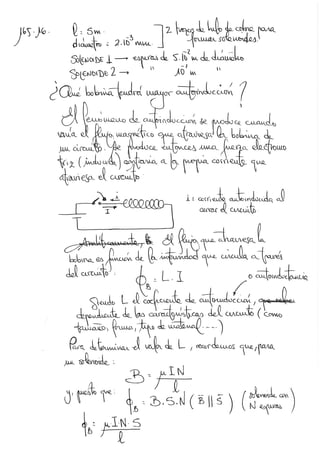 165.16. l: 5m. ] 2 trozos de hilo de cobre para
diámetro: 2.10⁻³ mm. formar solenoides!
SOLENOIDE 1 → espiras de 5.10⁻² m de diámetro
SOLENOIDE 2 → " 10⁻¹ m "
¿Qué bobina tendrá mayor autoinducción?
El fenómeno de autoinducción se produce cuando
varía el flujo magnético que atraviesa la bobina de
un circuito. Se produce entonces una fuerza electromo
triz (inducida) contraria a la propia corriente que
atraviesa el circuito
i
I
i: corriente autoinducida al
cerrar el circuito
El flujo que atraviesa la
bobina es función de la intensidad que circula a través
del circuito: ϕB = L·I o autoinductancia
Siendo L el coeficiente de autoinducción,
dependiente de las características del circuito (como
tamaño, forma, tipo de material....)
Para determinar el valor de L, recordemos que, para
un solenoide:
B = μIN/l
y, puesto que: ϕB = B.S.N (B̄ || S̄) (solenoide con
N espiras)
ϕB: μIN·S/l